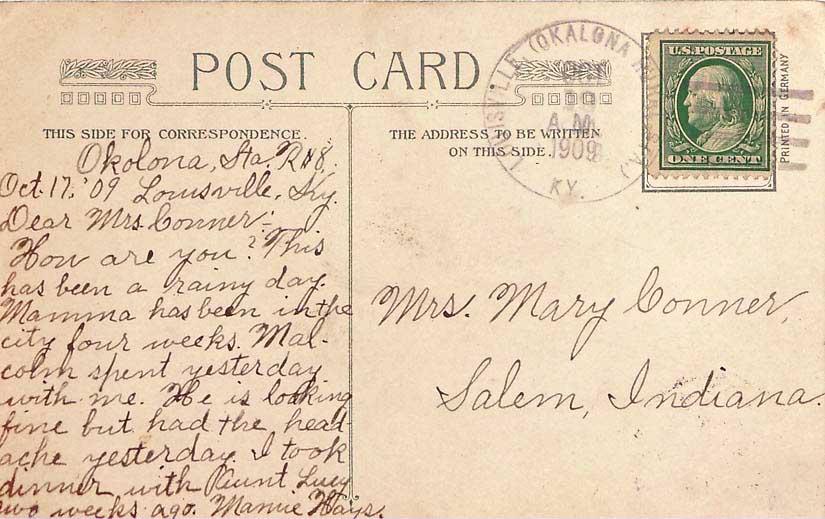 POST CARD
THIS SIDE FOR CORRESPONDENCE.
THE ADDRESS TO BE WRITTEN
ON THIS SIDE.
U.S. POSTAGE
ONE CENT
PRINTED IN GERMANY
(OKALONA
A.M.
1909
KY.
Okolona, Sta. R#8.
Oct. 17, '09 Louisville, Ky.
Dear Mrs. Conner:-
How are you? This
has been a rainy day.
Mamma has been in the
city four weeks. Mal-
colm spent yesterday
with me. He is looking
fine but had the head
ache yesterday. I took
dinner with Aunt Lucy
two weeks ago. Mamie Hays.
Mrs. Mary Conner,
Salem, Indiana.